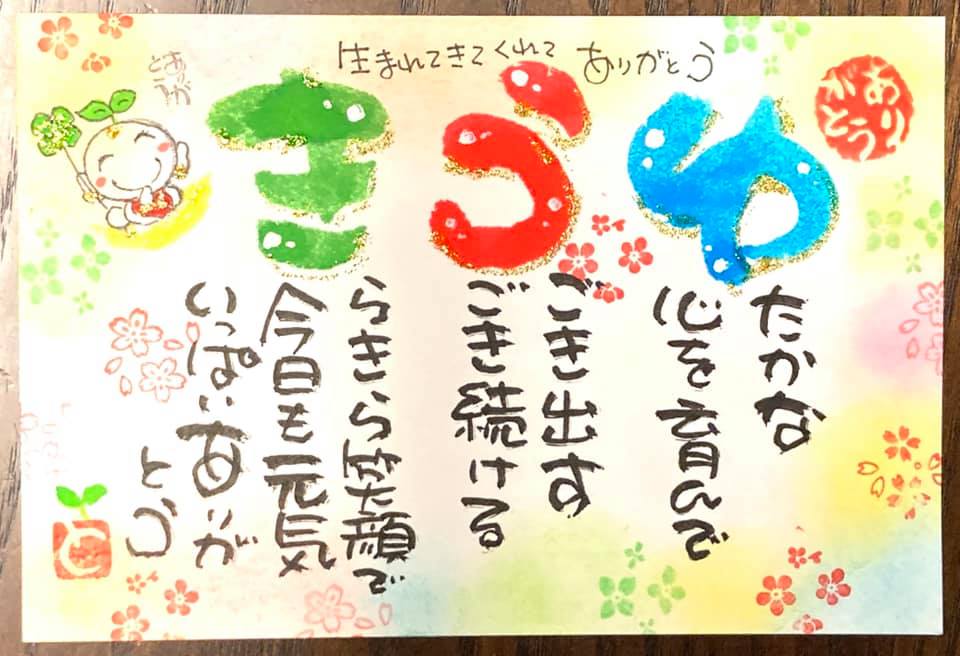 生まれてきてくれて ありがとう
ありがとう
ゆ
たかな
心を育んで
う
ごき出す
ごき続ける
き
らきら笑顔で
今日も元気
いっぱいありが
とう
ありが
とう